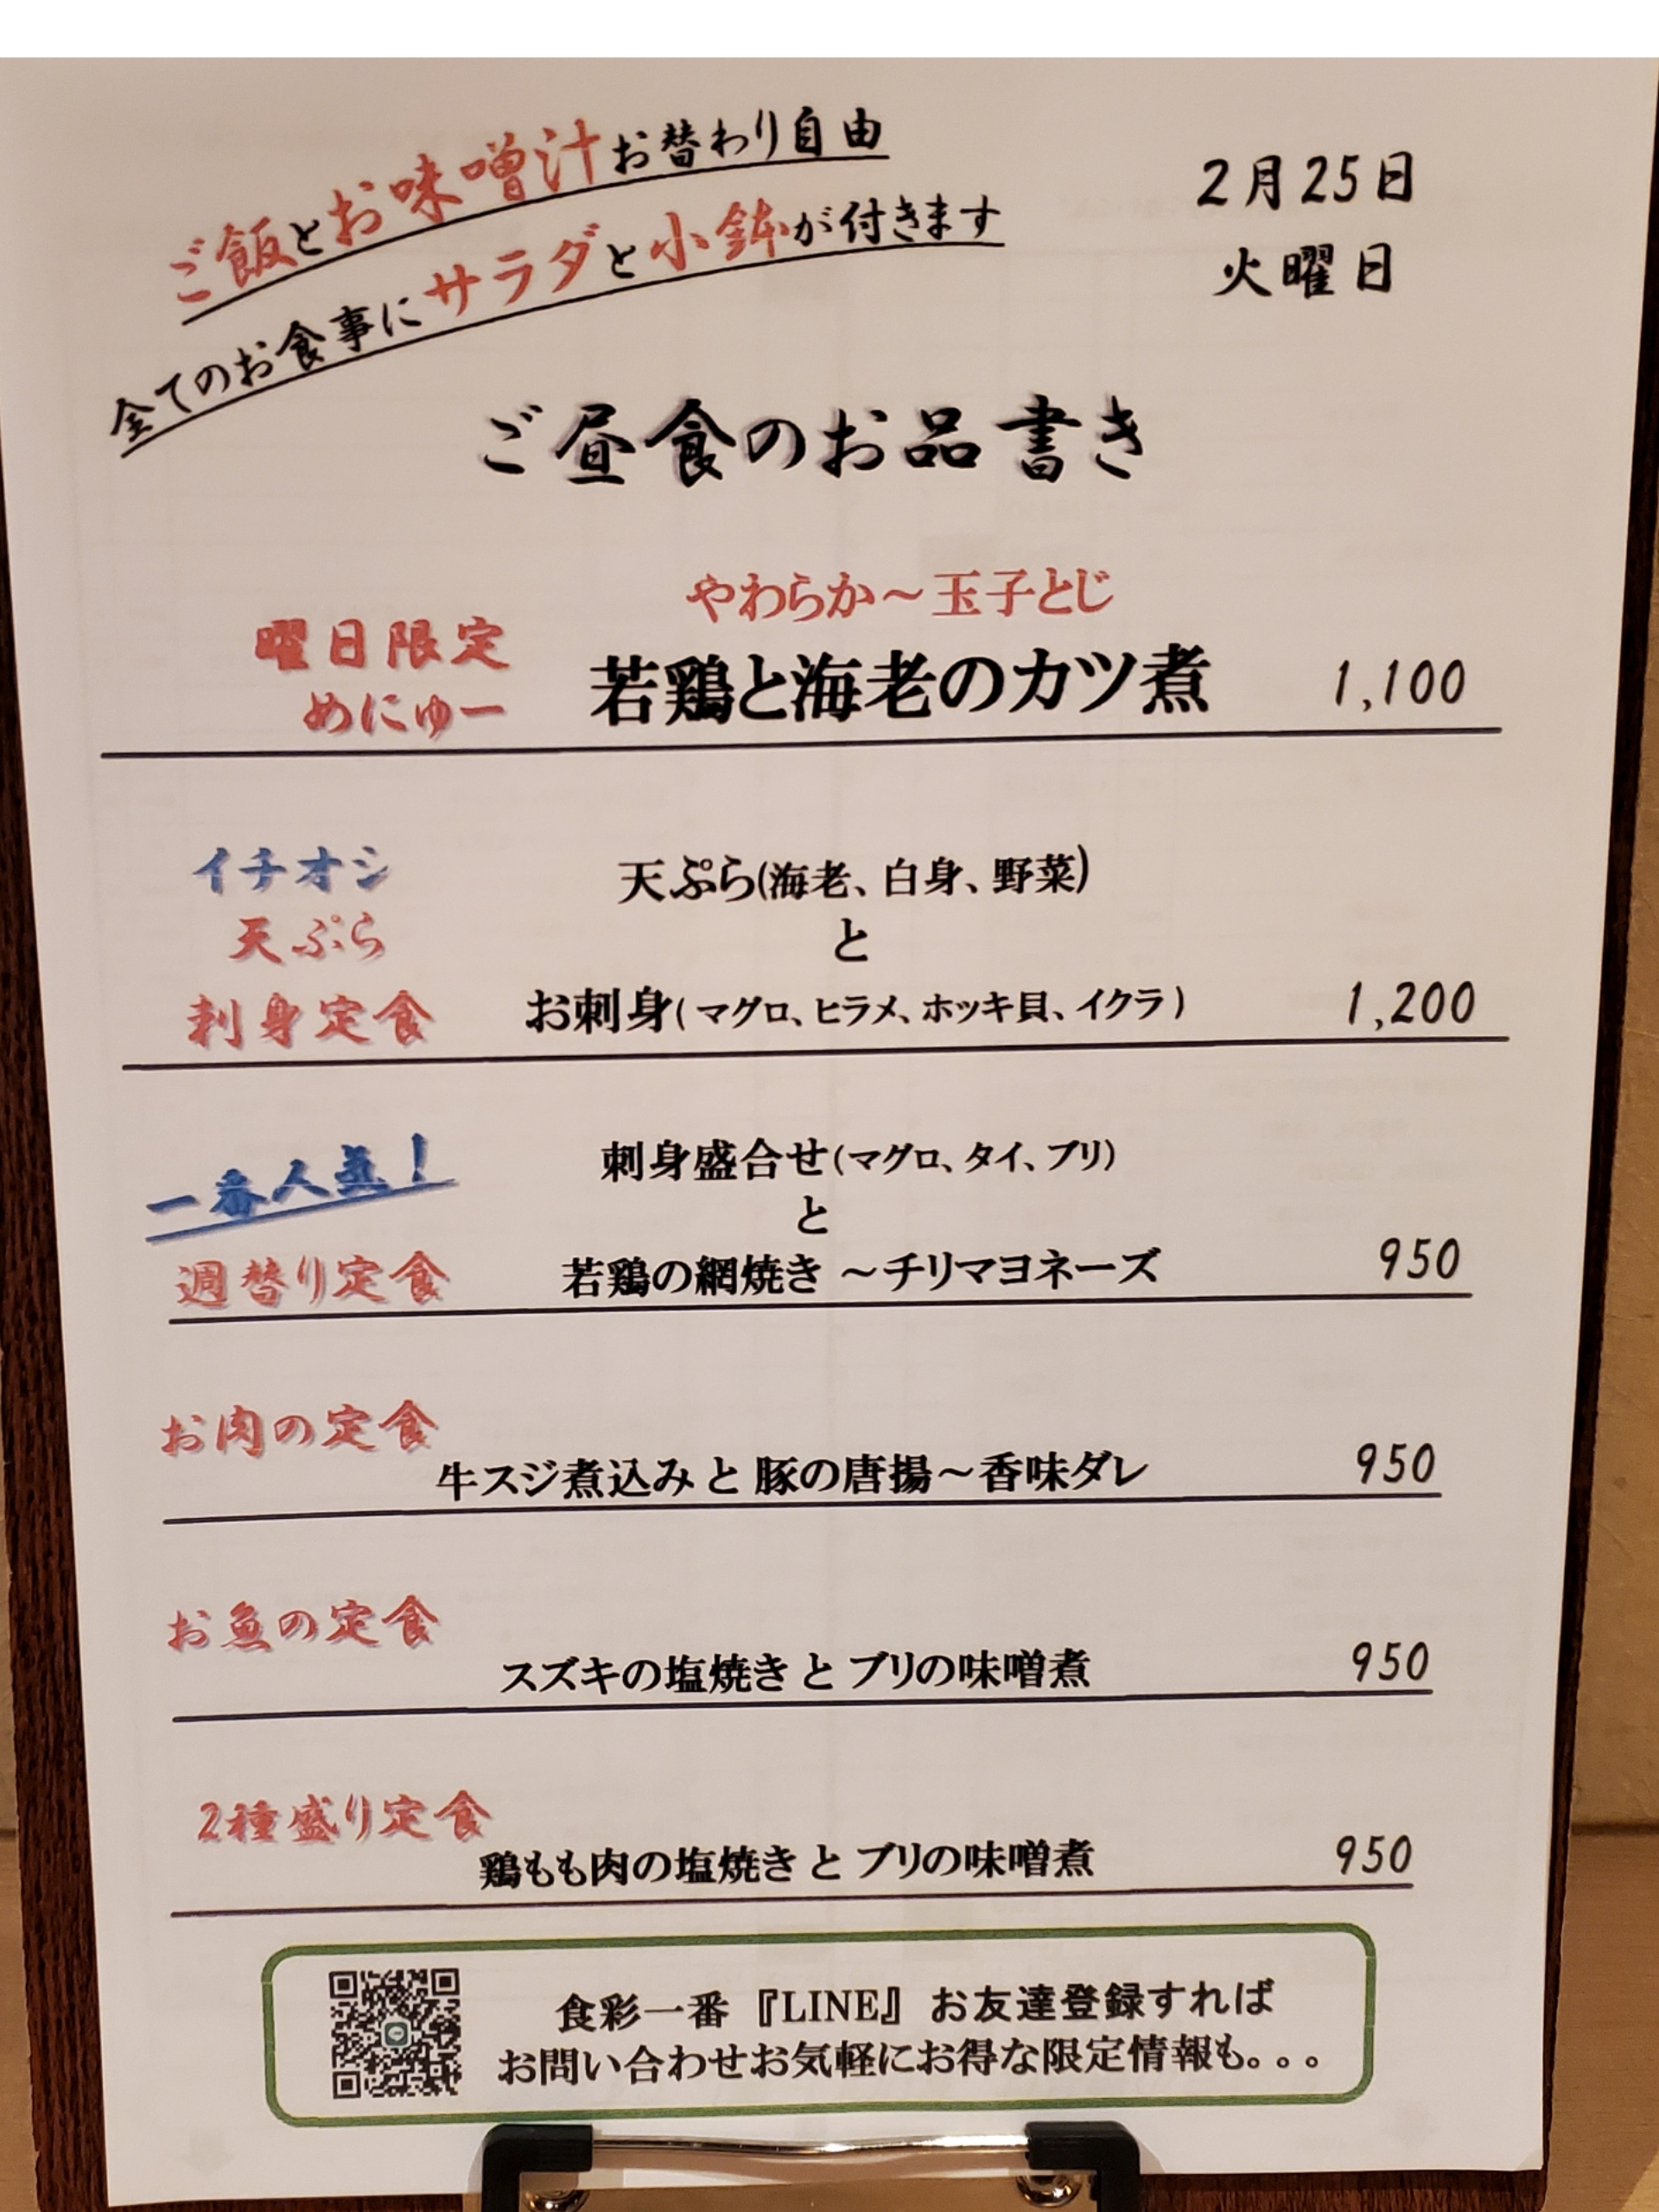 ご飯とお味噌汁お替わり自由
全てのお食事にサラダと小鉢が付きます
2月25日
火曜日
ご昼食のお品書き
曜日限定
めにゅー
やわらか～玉子とじ
若鶏と海老のカツ煮 1,100
イチオシ
天ぷら
刺身定食
天ぷら(海老、白身、野菜)
と
お刺身(マグロ、ヒラメ、ホッキ貝、イクラ) 1,200
一番人気！
週替り定食
刺身盛合せ(マグロ、タイ、ブリ)
と
若鶏の網焼き ～チリマヨネーズ 950
お肉の定食
牛スジ煮込み と 豚の唐揚～香味ダレ 950
お魚の定食
スズキの塩焼き と ブリの味噌煮 950
2種盛り定食
鶏もも肉の塩焼き と ブリの味噌煮 950
食彩一番『LINE』お友達登録すれば
お問い合わせお気軽にお得な限定情報も。。。